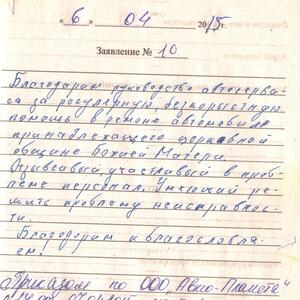 « 6 » 04 2015г.
Заявление № 10
Благодарим руководство автосерви-
са за регулярную, бескорыстную
помощь в ремоне автомобиля
принадлежащего церковной
общине Божией Матери.
Отзывсивый, участливый в проб-
леме персонал. Умеющий ре-
шить проблему неисправнос-
ти.
Благодарим и благословля-
ем!
"Приказом по ООО "Авто-Планета"